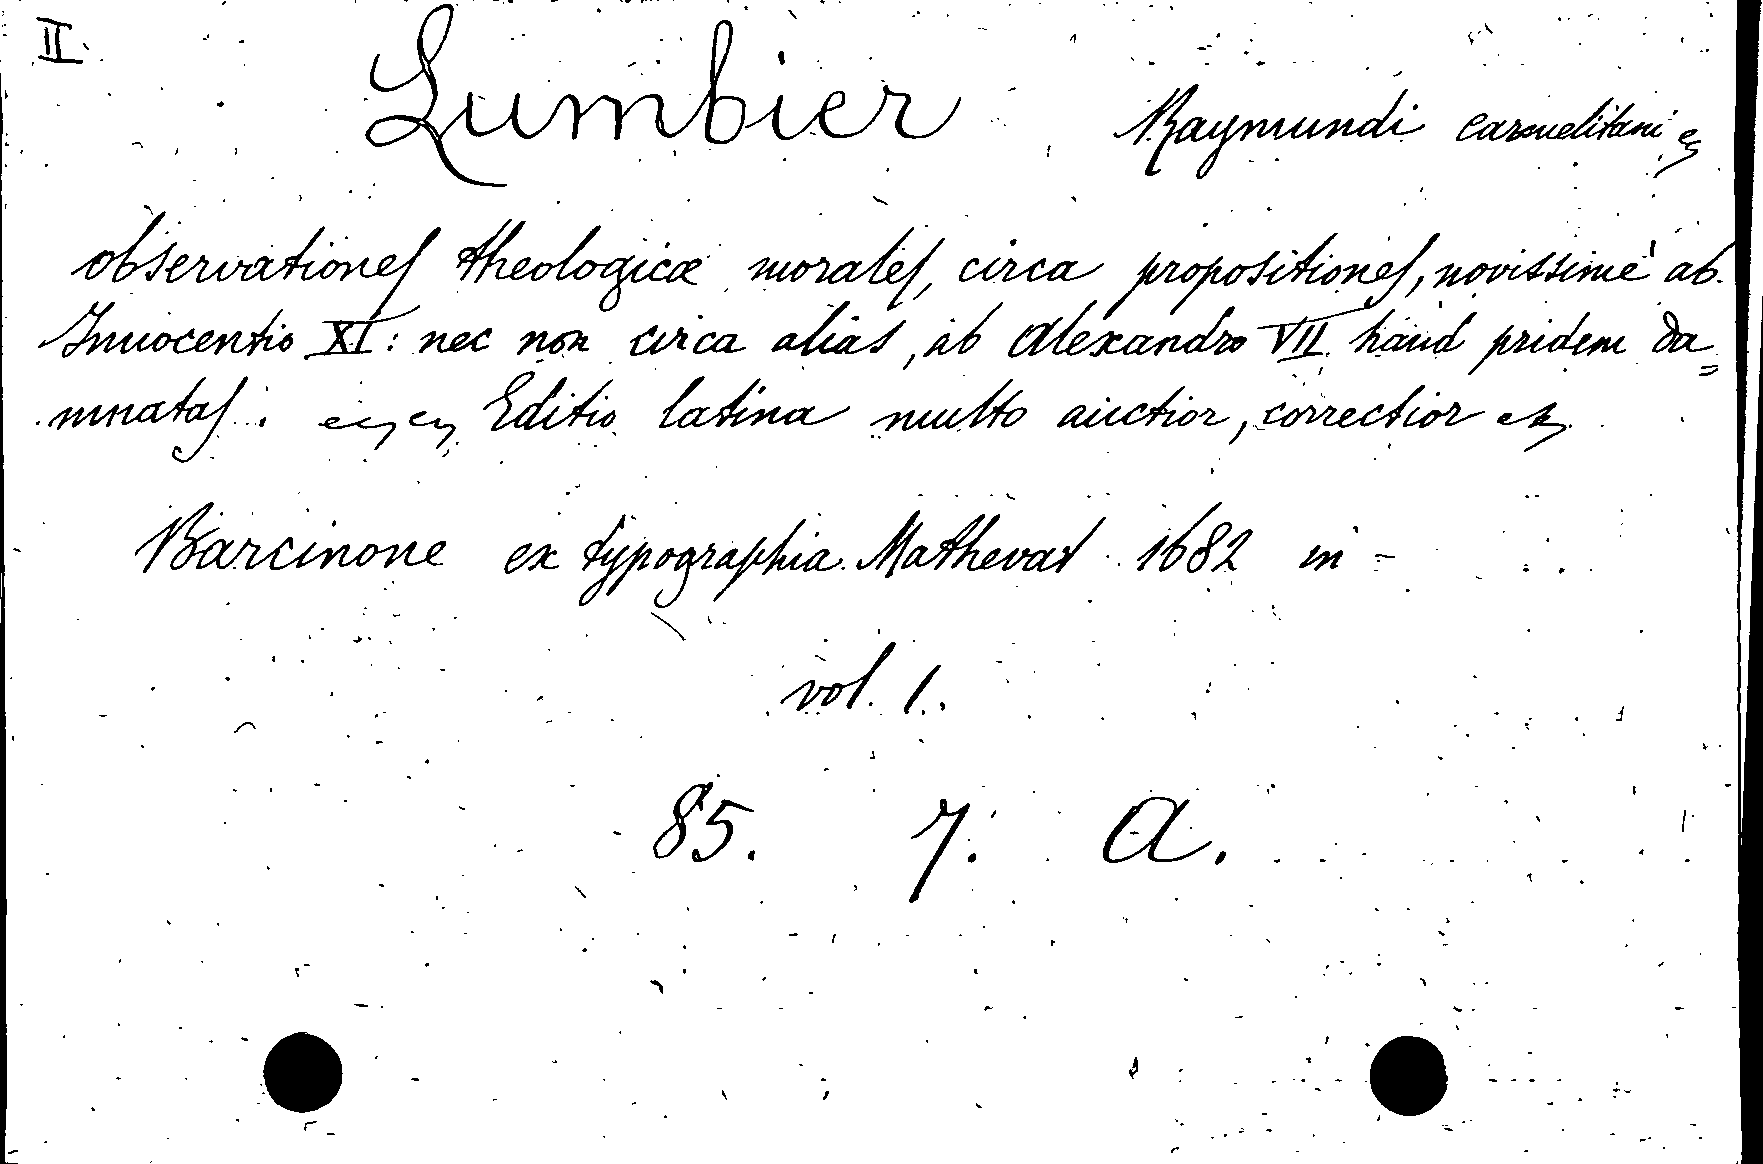 II.
Lumbier Raymundi carmelitani
observationes theologicæ morales, circa propositiones, novissimè ab
Innocentio XI: nec non circa alias, ab Alexandro VII haud pridem da=
mnatas. Editio latina multo auctior, correctior
Barcinone ex typographia Mathevat 1682 in -
vol. 1.
85. 7. A.